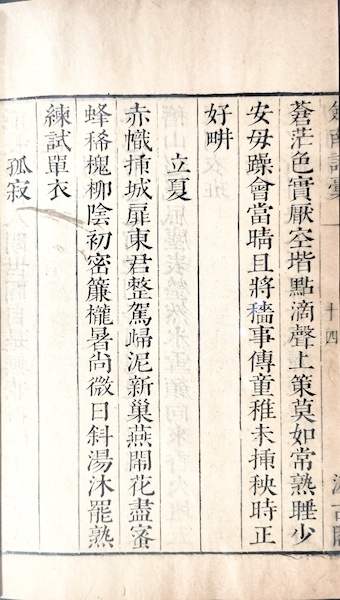 十四
蒼茫色實厭空堦點滴聲上策莫如常熟睡少
安毋躁會當晴且將穡事傳童稚未揷秧時正
好畊
立夏
赤幟揷城扉東君整駕歸泥新巢燕閙花盡蜜
蜂稀槐柳陰初密簾櫳暑尚微日斜湯沐罷熟
練試單衣
孤寂